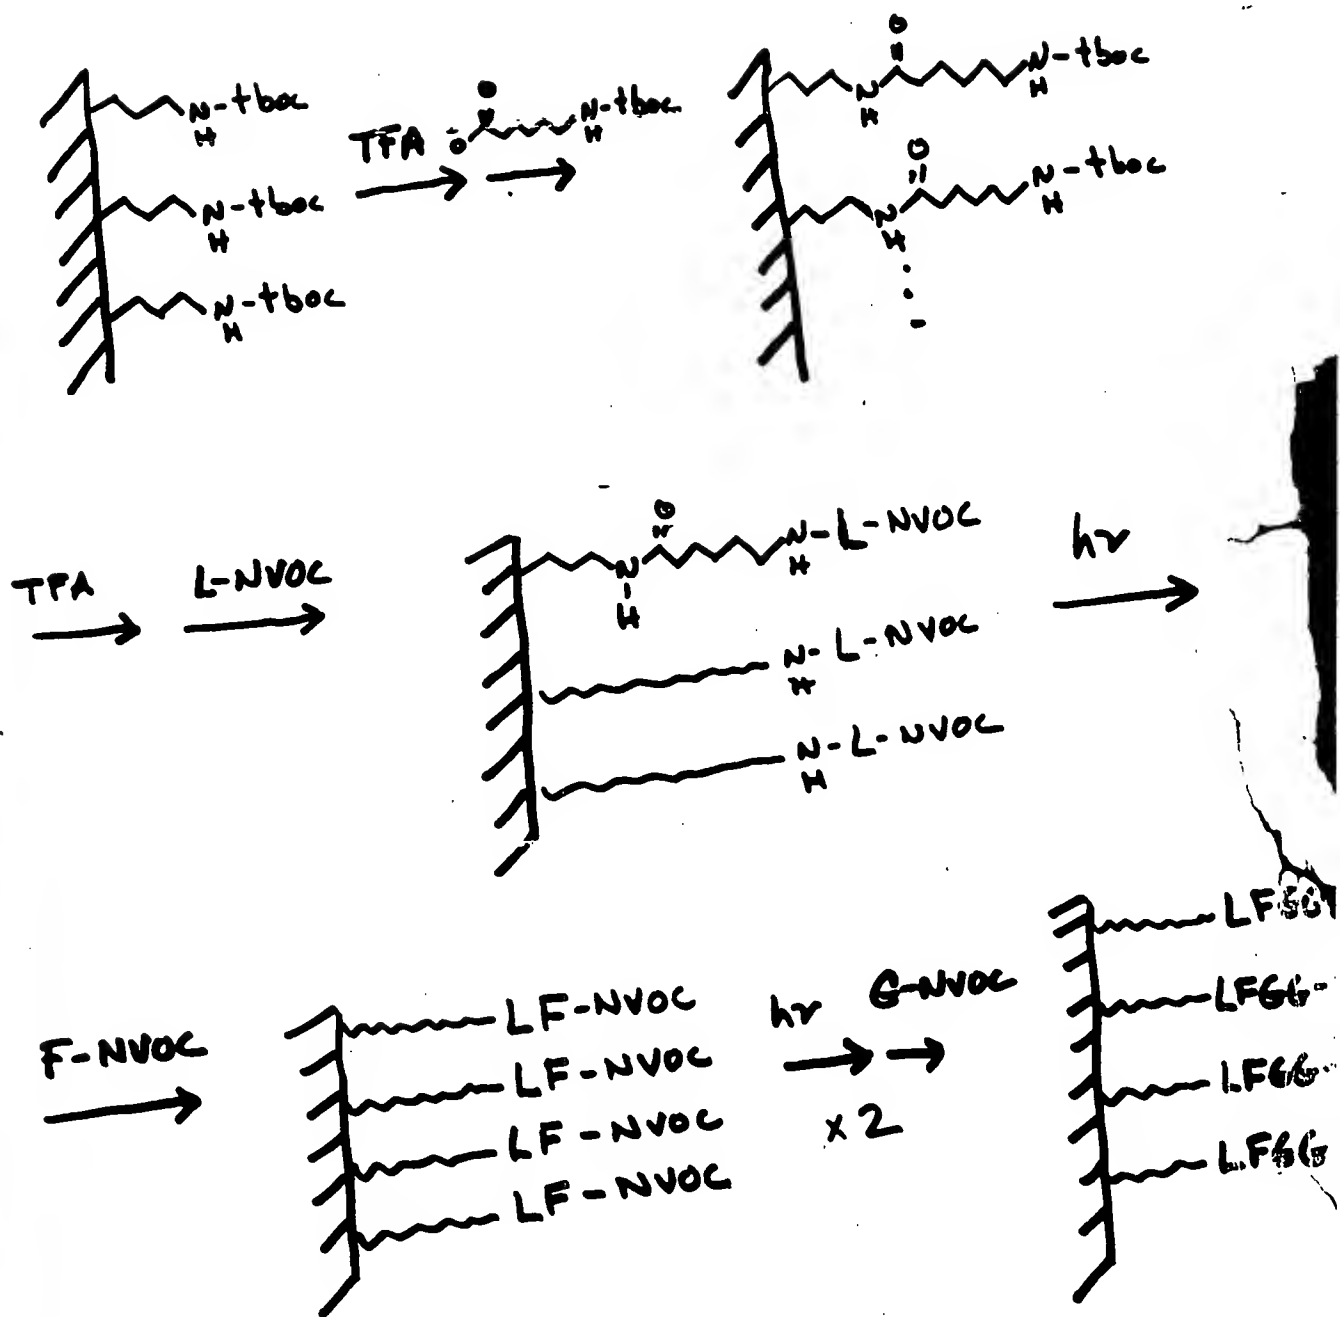 N-tboc
H
N-tboc
H
N-tboc
H
TFA
O
-O
N-tboc
H
O
N
H
N-tboc
H
O
N
H
N-tboc
H
TFA
L-NVOC
O
N
H
N-L-NVOC
H
N-L-NVOC
H
N-L-NVOC
H
hν
F-NVOC
LF-NVOC
LF-NVOC
LF-NVOC
LF-NVOC
hν
G-NVOC
x2
LFGG
LFGG-
LFGG-
LFGG